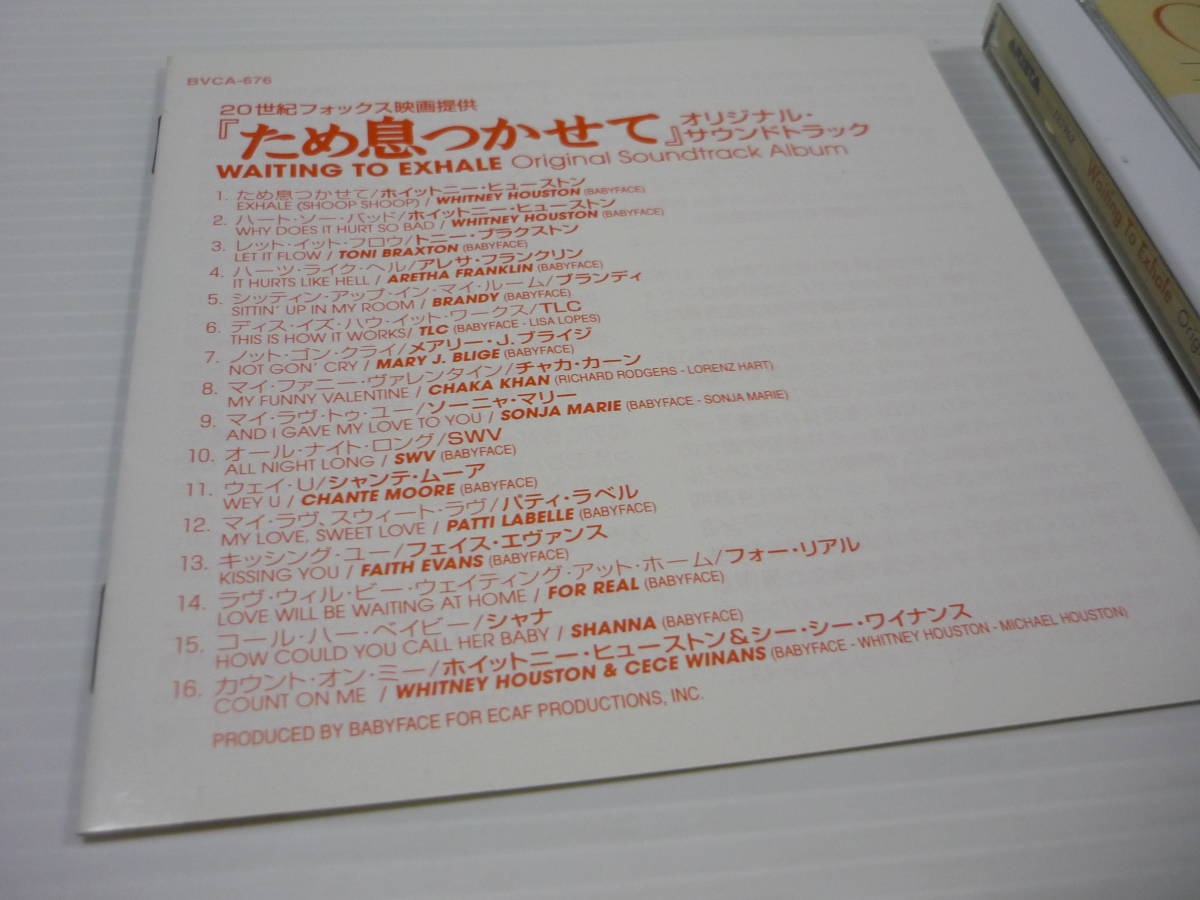 BVCA-676
20世紀フォックス映画提供
『ため息つかせて』オリジナル・サウンドトラック
WAITING TO EXHALE Original Soundtrack Album
1. ため息つかせて/ホイットニー・ヒューストン
EXHALE (SHOOP SHOOP) / WHITNEY HOUSTON (BABYFACE)
2. ハート・ソー・バッド/ホイットニー・ヒューストン
WHY DOES IT HURT SO BAD / WHITNEY HOUSTON (BABYFACE)
3. レット・イット・フロウ/トニー・ブラクストン
LET IT FLOW / TONI BRAXTON (BABYFACE)
4. ハーツ・ライク・ヘル/アレサ・フランクリン
IT HURTS LIKE HELL / ARETHA FRANKLIN (BABYFACE)
5. シッティン・アップ・イン・マイ・ルーム/ブランディ
SITTIN' UP IN MY ROOM / BRANDY (BABYFACE)
6. ディス・イズ・ハウ・イット・ワークス/TLC
THIS IS HOW IT WORKS/ TLC (BABYFACE - LISA LOPES)
7. ノット・ゴン・クライ/メアリー・J.ブライジ
NOT GON' CRY / MARY J. BLIGE (BABYFACE)
8. マイ・ファニー・ヴァレンタイン/チャカ・カーン
MY FUNNY VALENTINE / CHAKA KHAN (RICHARD RODGERS - LORENZ HART)
9. マイ・ラヴ・トゥ・ユー/ソーニャ・マリー
AND I GAVE MY LOVE TO YOU / SONJA MARIE (BABYFACE - SONJA MARIE)
10. オール・ナイト・ロング/SWV
ALL NIGHT LONG / SWV (BABYFACE)
11. ウェイ・U/シャンテ・ムーア
WEY U / CHANTE MOORE (BABYFACE)
12. マイ・ラヴ、スウィート・ラヴ/パティ・ラベル
MY LOVE, SWEET LOVE / PATTI LABELLE (BABYFACE)
13. キッシング・ユー/フェイス・エヴァンス
KISSING YOU / FAITH EVANS (BABYFACE)
14. ラヴ・ウィル・ビー・ウェイティング・アット・ホーム/フォー・リアル
LOVE WILL BE WAITING AT HOME / FOR REAL (BABYFACE)
15. コール・ハー・ベイビー/シャナ
HOW COULD YOU CALL HER BABY / SHANNA (BABYFACE)
16. カウント・オン・ミー/ホイットニー・ヒューストン&シー・シー・ワイナンス
COUNT ON ME / WHITNEY HOUSTON & CECE WINANS (BABYFACE - WHITNEY HOUSTON - MICHAEL HOUSTON)
PRODUCED BY BABYFACE FOR ECAF PRODUCTIONS, INC.
ARISTA
Waiting To Exhale